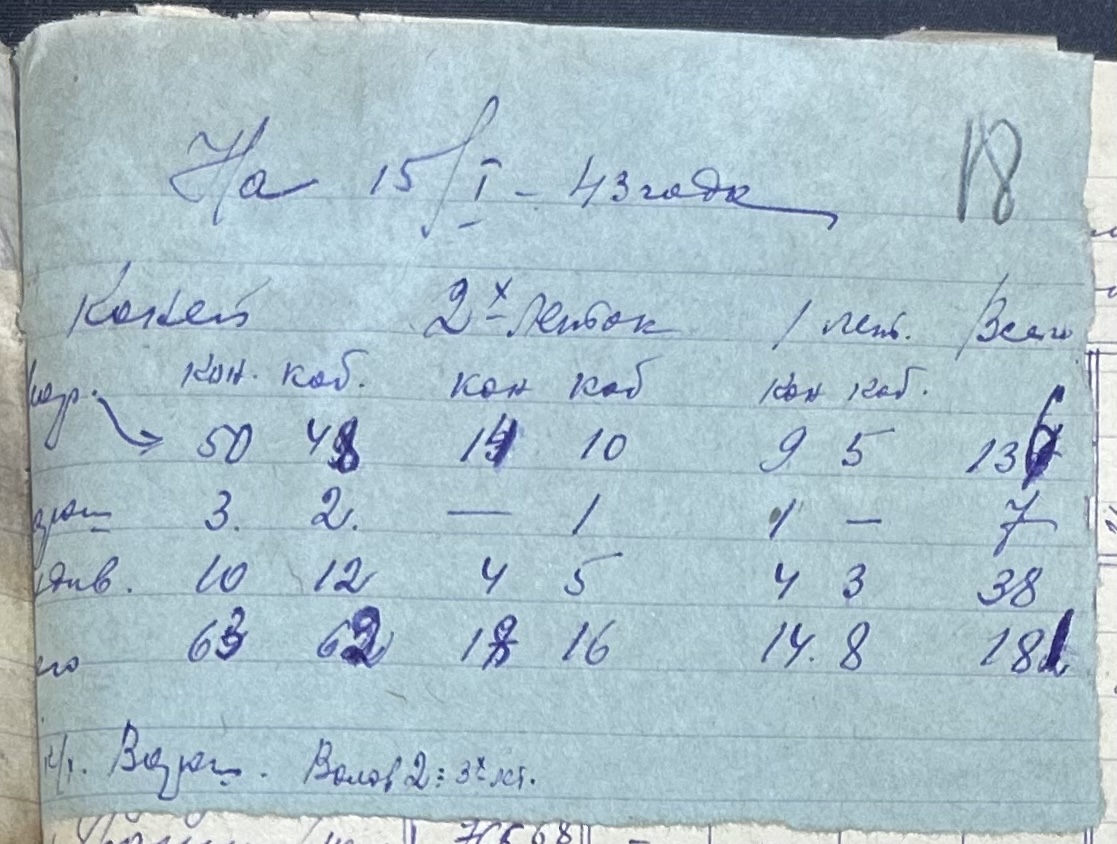 На 15/I - 43 года 18
Коней 2х леток 1 лет. Всего
кон. коб. кон коб кон коб.
50 48 14 10 9 5 136
3. 2. — 1 1 — 7
10 12 4 5 4 3 38
63 62 18 16 14. 8 181
Волов 2: 3х лет.